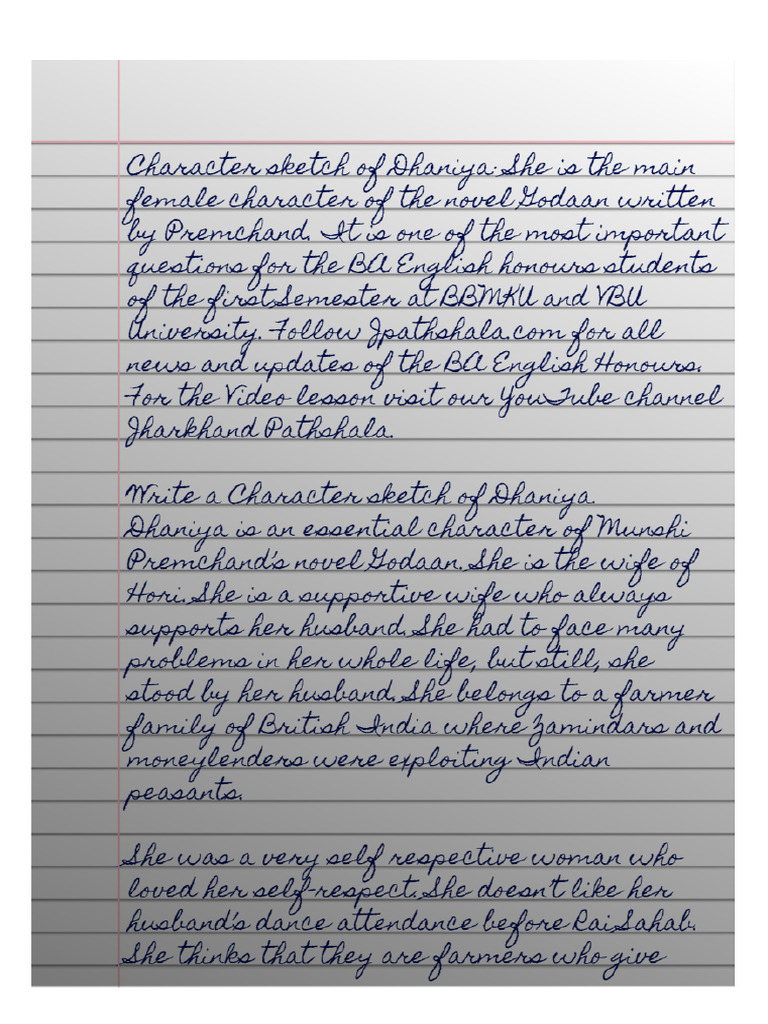 Character sketch of Dhaniya: She is the main
female character of the novel Godaan written
by Premchand. It is one of the most important
questions for the BA English honours students
of the first Semester at BBMKU and VBU
University. Follow Jpathshala.com for all
news and updates of the BA English Honours.
For the Video lesson visit our YouTube channel
Jharkhand Pathshala.
Write a Character sketch of Dhaniya.
Dhaniya is an essential character of Munshi
Premchand's novel Godaan. She is the wife of
Hori. She is a supportive wife who always
supports her husband. She had to face many
problems in her whole life, but still, she
stood by her husband. She belongs to a farmer
family of British India where Zamindars and
moneylenders were exploiting Indian
peasants.
She was a very self respective woman who
loved her self-respect. She doesn't like her
husband's dance attendance before Rai Sahab.
She thinks that they are farmers who give